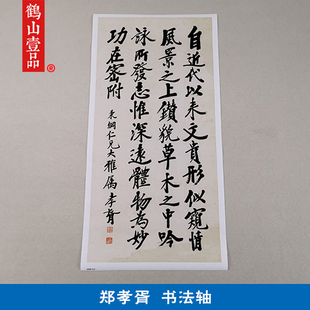 鹤山壹品
自近代以来文貴形似窺情
風景之上鑽貌草木之中吟
詠所發志惟深遠體物為妙
功在密附
來綱仁兄大雅属 孝胥
郑孝胥 书法轴